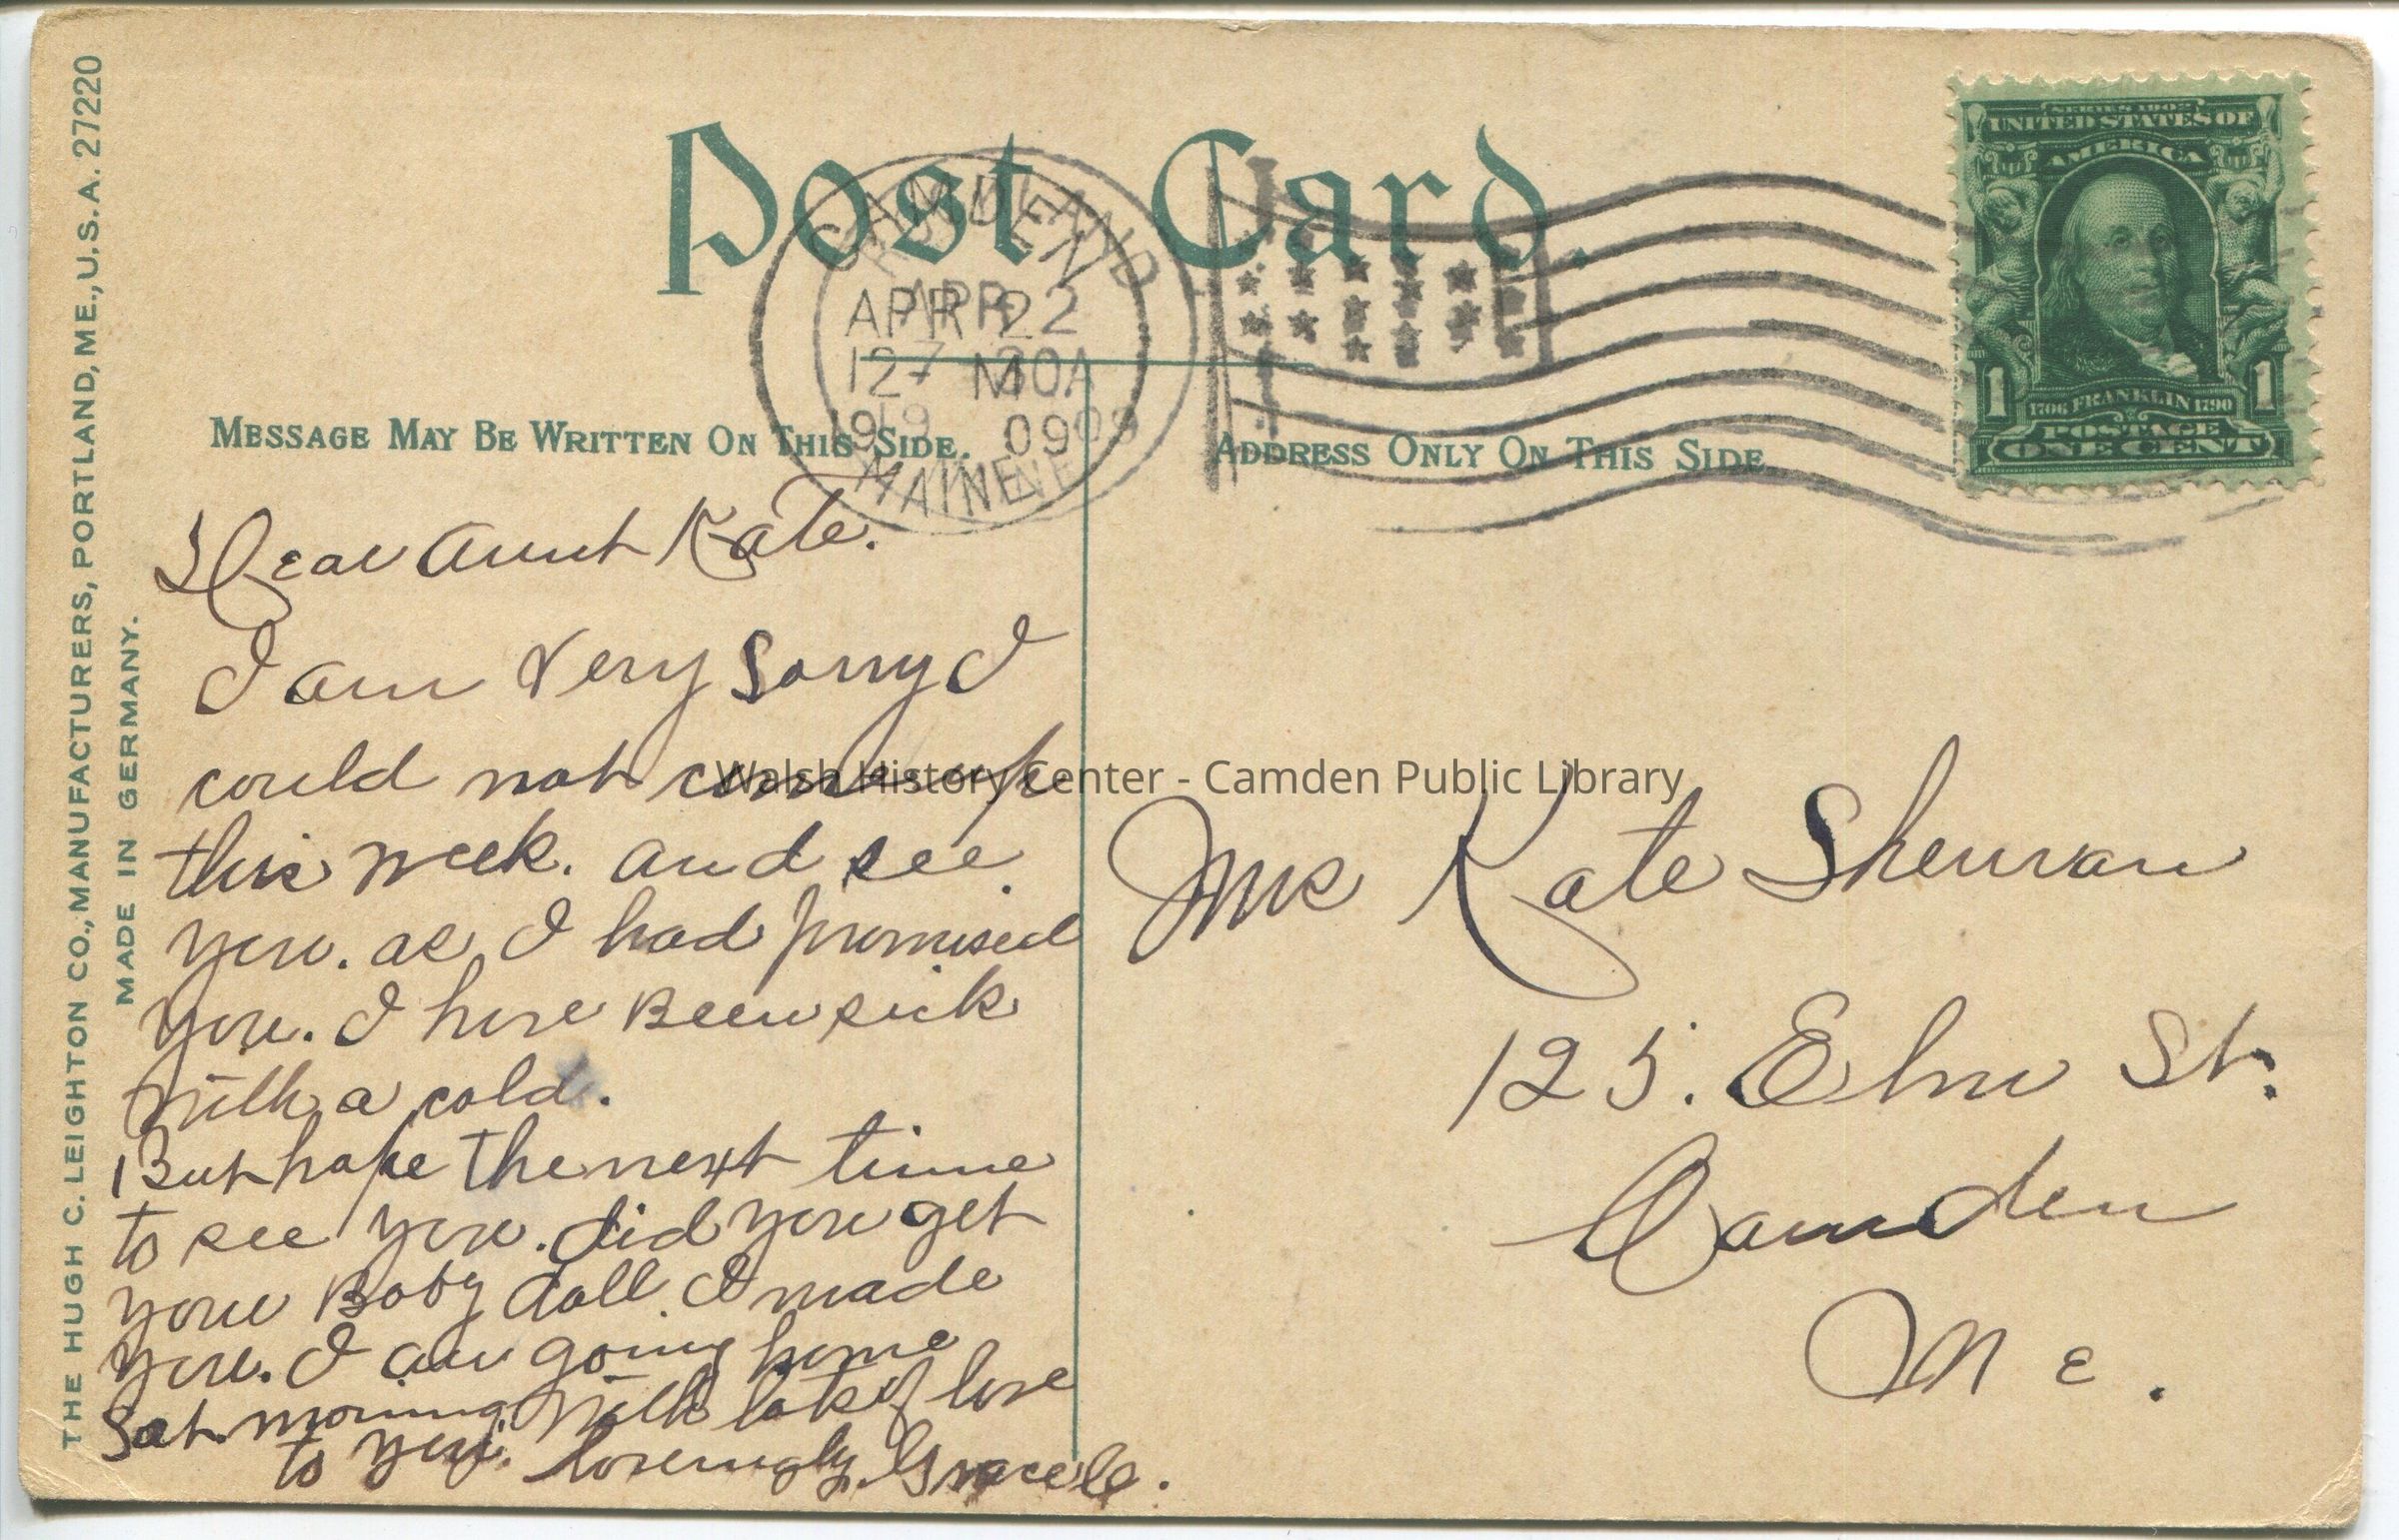 THE HUGH C. LEIGHTON CO., MANUFACTURERS, PORTLAND, ME., U.S.A. 27220
MADE IN GERMANY.
Post Card.
CAMDEN
APR 22
12 - M
19 09
MAINE
SERIES 1902
UNITED STATES OF
AMERICA
1 1
1706 FRANKLIN 1790
POSTAGE
ONE CENT
MESSAGE MAY BE WRITTEN ON THIS SIDE.
ADDRESS ONLY ON THIS SIDE
Dear Aunt Kate.
I am very sorry I
could not come up
this week. and see
you. as I had promised
you. I have Been sick
with a cold.
But hope the next time
to see you. did you get
your Baby doll I made
you. I am going home
Sat. morning. with lots of love
to you. lovingly. Grace
Walsh History Center - Camden Public Library
Mrs Kate Sherman
125. Elm St.
Camden
Me.